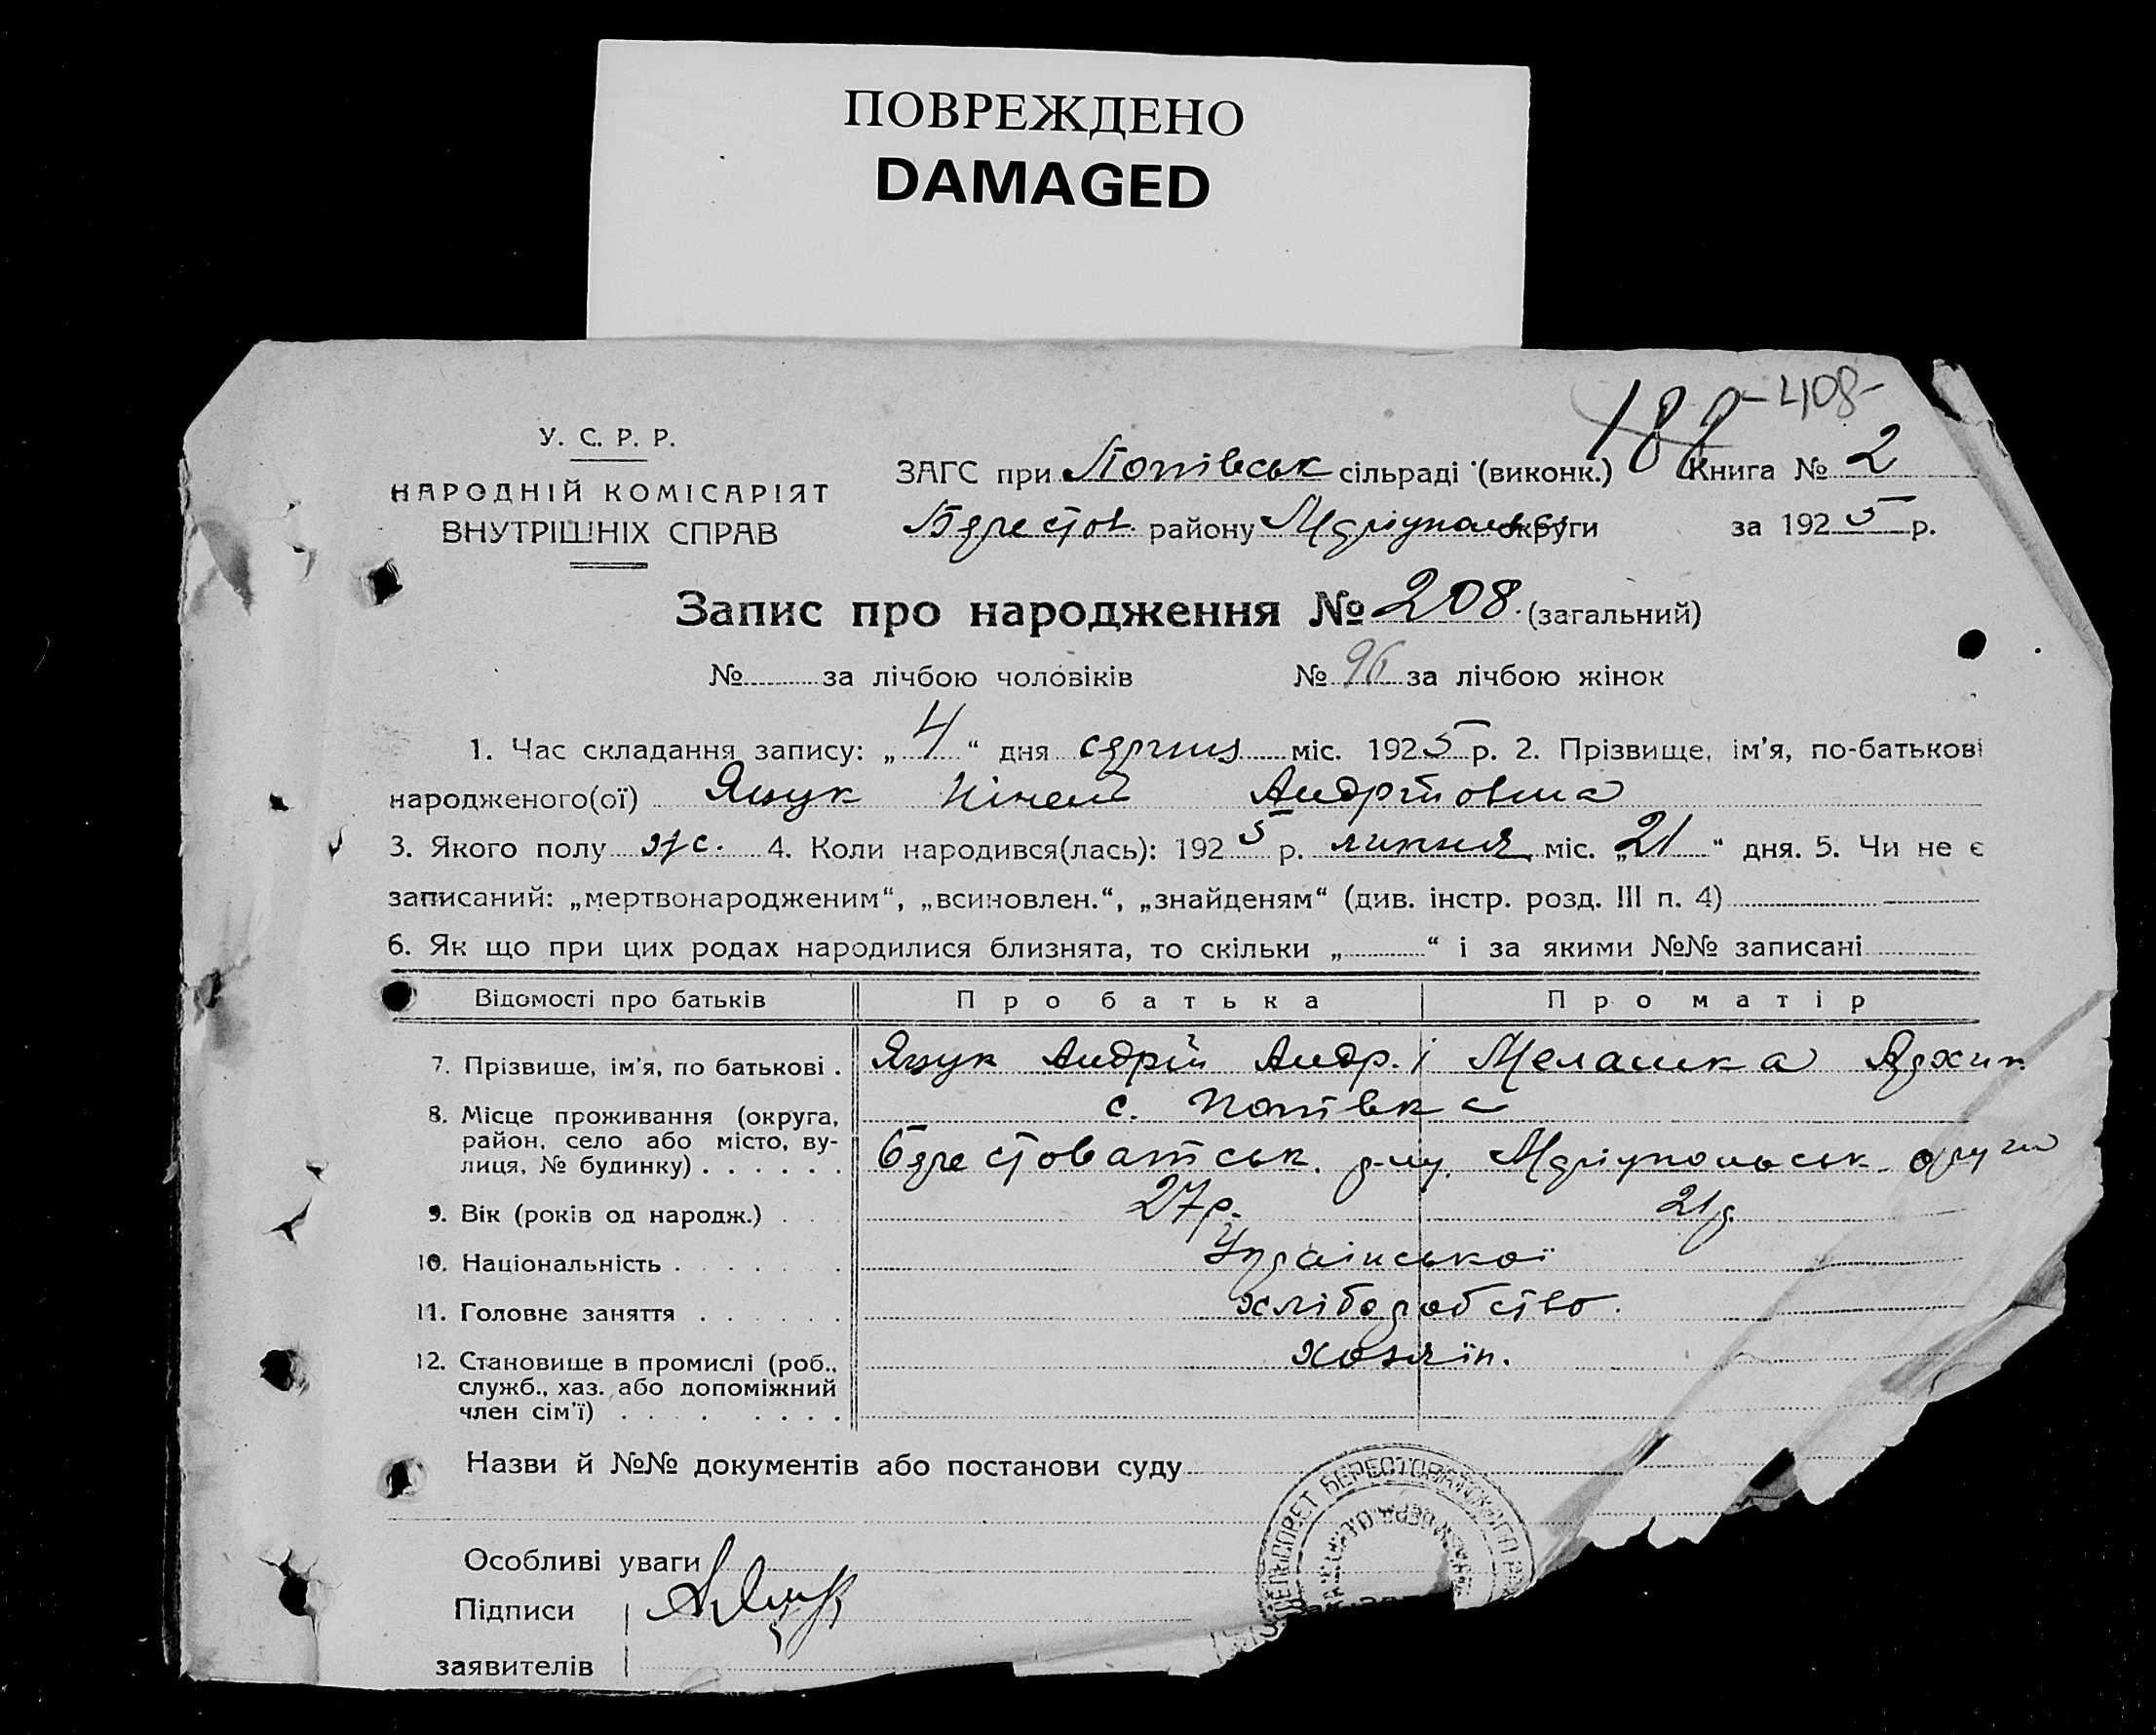 ПОВРЕЖДЕНО
DAMAGED
188 -408-
У. С. Р. Р.
НАРОДНІЙ КОМІСАРІЯТ
ВНУТРІШНІХ СПРАВ
ЗАГС при Попівськ сільраді (виконк.) Книга № 2
Берестов. району Маріупольс округи за 1925 р.
Запис про народження № 208. (загальний)
№ за лічбою чоловіків № 96 за лічбою жінок
1. Час складання запису: „4“ дня серпня міс. 1925 р. 2. Прізвище, ім'я, по-батькові
народженого(ої) Ящук Андріївна
3. Якого полу ж. 4. Коли народився(лась): 1925 р. липня міс. „21“ дня. 5. Чи не є
записаний: „мертвонародженим“, „всиновлен.“, „знайденям“ (див. інстр. розд. III п. 4)
6. Як що при цих родах народилися близнята, то скільки „ “ і за якими №№ записані
Відомості про батьків Про батька Про матір
7. Прізвище, ім'я, по батькові . Ящук Андрій Андр. і Мелашка
8. Місце проживання (округа, с. Попівка
район, село або місто, ву-
лиця, № будинку) . . . . . . Берестоватськ. р-ну. Маріупольськ округи
9. Вік (років од народж.) . . . 27р. 21р.
10. Національність . . . . . . . Української
11. Головне заняття . . . . . . хліборобство.
12. Становище в промислі (роб., хозяїн.
служб., хаз. або допоміжний
член сім'ї) . . . . . . . .
Назви й №№ документів або постанови суду
Особливі уваги
Підписи
заявителів
СЕЛЬСОВЕТ БЕРЕСТОВАТСКОГО